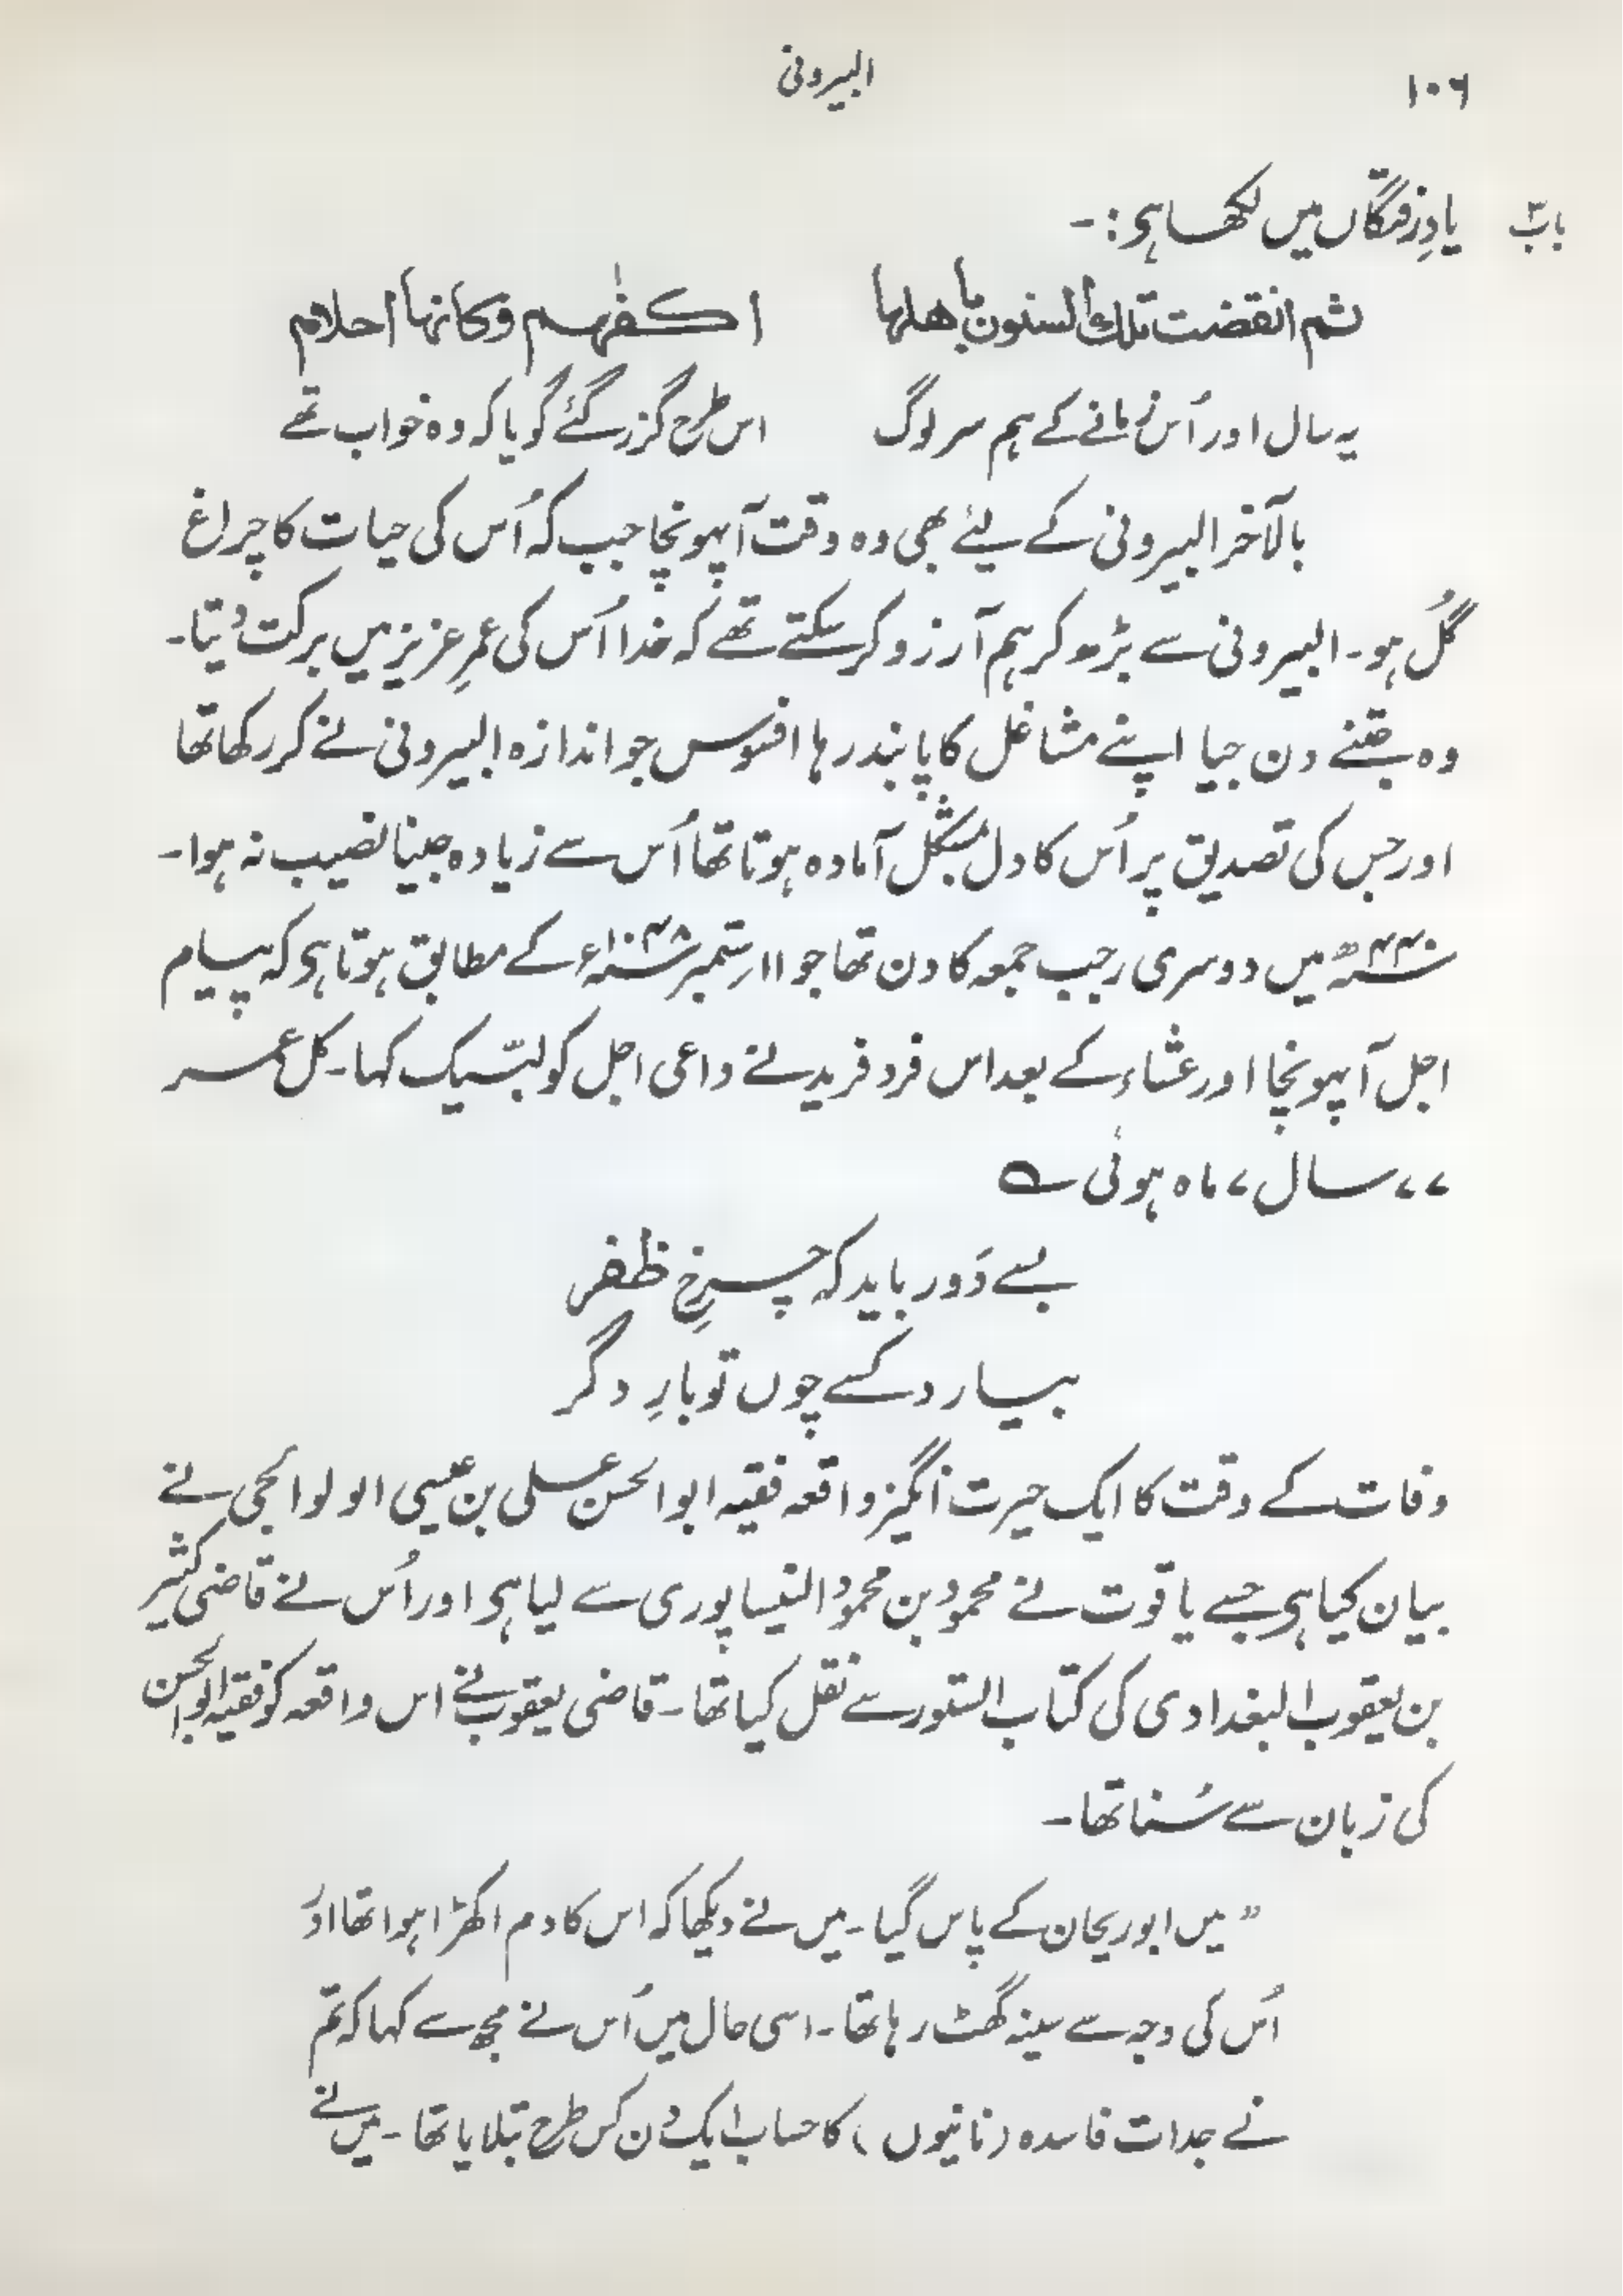 ۱۰۶
البیرونی
باب
یادِ رفتگاں میں لکھا ہی :-
ثم انقضت تلك السنون باهلها اکفٰہم وکانہا احلام
یہ سال اور اُس زمانے کے ہم سر لوگ اس طرح گزر گئے گویا کہ وہ خواب تھے
بالآخر البیرونی کے لیئے بھی وہ وقت آپہونچا جب کہ اُس کی حیات کا چراغ
گُل ہو۔ البیرونی سے بڑھ کر ہم آرزو کر سکتے تھے کہ خدا اُس کی عمرِ عزیز میں برکت دیتا۔
وہ جتنے دن جیا اپنے مشاغل کا پابند رہا افسوس جو اندازہ البیرونی نے کر رکھا تھا
اور جس کی تصدیق پر اُس کا دل بمشکل آمادہ ہوتا تھا اُس سے زیادہ جینا نصیب نہ ہوا۔
۴۴۰ھ میں دوسری رجب جمعہ کا دن تھا جو ۱۱ ستمبر ۱۰۴۸ء کے مطابق ہوتا ہی کہ پیام
اجل آپہونچا اور عشاء کے بعد اس فرد فرید نے داعی اجل کو لبّیک کہا۔ کل عمر
۷۷ سال ۷ ماہ ہوئی ؎
بسے دَور باید کہ چرخِ ظفر
بیارد کسے چوں تو بارِ دگر
وفات کے وقت کا ایک حیرت انگیز واقعہ فقیہ ابوالحسن علی بن عیسی الولوالجی نے
بیان کیا ہی جسے یاقوت نے محمود بن محمود النیساپوری سے لیا ہی اور اُس نے قاضی کثیر
بن یعقوب البغدادی کی کتاب الستور سے نقل کیا تھا۔ قاضی یعقوب نے اس واقعہ کو فقیہ ابوالحسن
کی زبان سے سُنا تھا۔
” میں ابو ریحان کے پاس گیا۔ میں نے دیکھا کہ اس کا دم اکھڑا ہوا تھا اور
اُس کی وجہ سے سینہ گھٹ رہا تھا۔ اسی حال میں اُس نے مجھ سے کہا کہ تم
نے جدات فاسدہ (نانیوں) کا حساب ایک دن کس طرح بتلایا تھا۔ میں نے